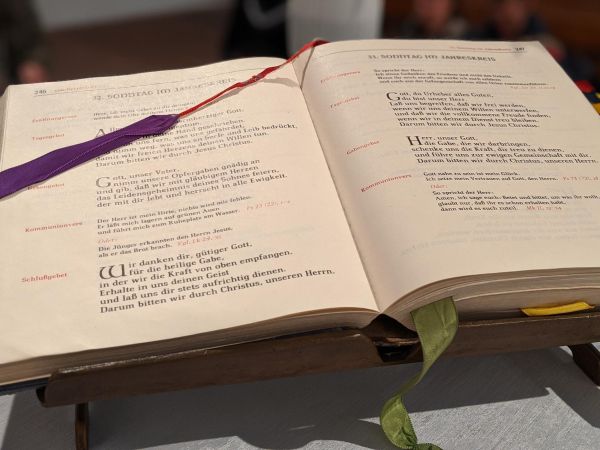 246
32. SONNTAG IM JAHRESKREIS
Eröffnungsvers
Tagesgebet
Allmächtiger Gott,
und Leib bedrückt,
damit wir freien Herzens deinen Willen tun.
Darum bitten wir durch Jesus Christus.
Gott, unser Vater,
nimm unsere Opfergaben gnädig an
und gib, daß wir mit gläubigem Herzen
das Leidensgeheimnis deines Sohnes feiern,
der mit dir lebt und herrscht in alle Ewigkeit.
Kommunionvers
Der Herr ist mein Hirte, nichts wird mir fehlen.
Er läßt mich lagern auf grünen Auen
und führt mich zum Ruheplatz am Wasser.
Oder:
Die Jünger erkannten den Herrn Jesus,
als er das Brot brach.
Schlußgebet
Wir danken dir, gütiger Gott,
für die heilige Gabe,
in der wir die Kraft von oben empfangen.
Erhalte in uns deinen Geist
und laß uns dir stets aufrichtig dienen.
Darum bitten wir durch Christus, unseren Herrn.
247
33. SONNTAG IM JAHRESKREIS
Eröffnungsvers
So spricht der Herr:
Tagesgebet
Gott, du Urheber alles Guten,
du bist unser Herr.
Laß uns begreifen, daß wir frei werden,
wenn wir uns deinem Willen unterwerfen,
und daß wir die vollkommene Freude finden,
wenn wir in deinem Dienst treu bleiben.
Darum bitten wir durch Jesus Christus.
Gabengebet
Herr, unser Gott,
die Gabe, die wir darbringen,
schenke uns die Kraft, dir treu zu dienen,
und führe uns zur ewigen Gemeinschaft mit dir.
Darum bitten wir durch Christus, unseren Herrn.
Kommunionvers
Gott nahe zu sein ist mein Glück.
Ich setze mein Vertrauen auf Gott, den Herrn.
Oder:
So spricht der Herr:
Amen, ich sage euch: Betet und bittet, um was ihr wollt,
glaubt nur, daß ihr es schon erhalten habt,
dann wird es euch zuteil.